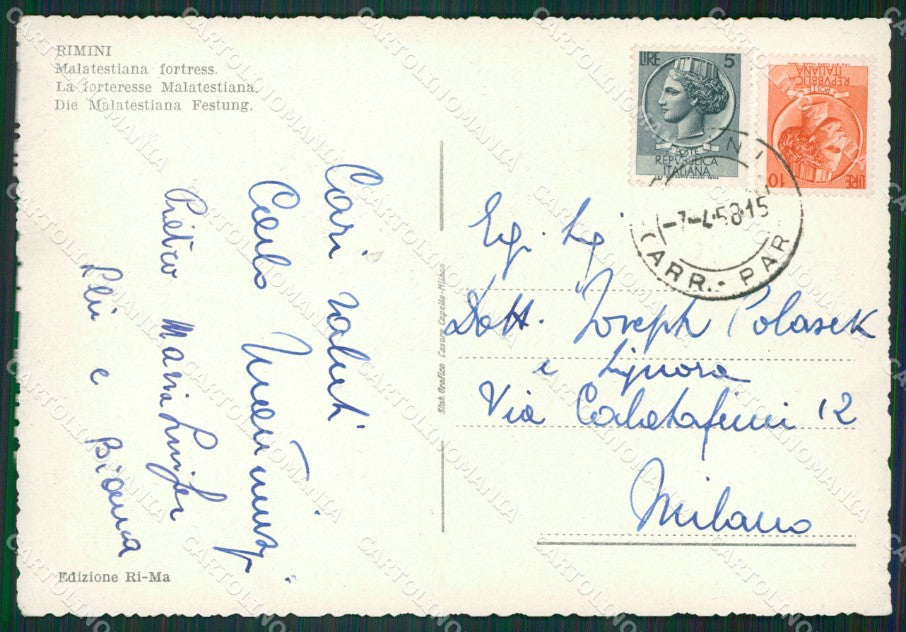 RIMINI
Malatestiana fortress.
La forteresse Malatestiana.
Die Malatestiana Festung.
Cari saluti
Carlo
Pietro Maria Luigi
e Bianca
Edizione Ri-Ma
Stab. Grafico Cesare Capello-Milano
LIRE 5
POSTE
REPVBBLICA
ITALIANA
LIRE 10
POSTE
REPVBBLICA
ITALIANA
-7-4-58 15
ARR.-PAR
Eg. Sig
Dott. Joseph Polasek
e Signora
Via Calatafimi 12
Milano
CARTOLINOMANIA